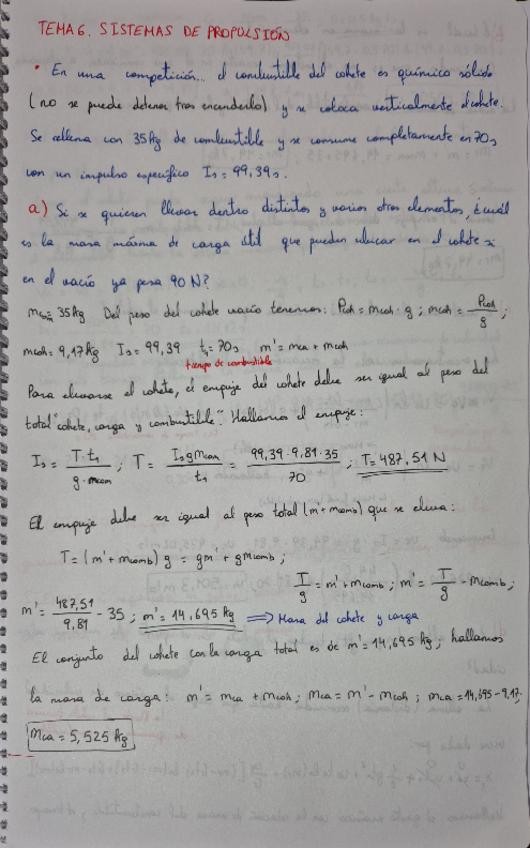 TEMA 6. SISTEMAS DE PROPULSIÓN
• En una competición... el combustible del cohete es químico sólido
(no se puede detener tras encenderlo) y se coloca verticalmente el cohete.
Se rellena con 35 kg de combustible y se consume completamente en 70s
con un impulso específico Is = 99,39s.
a) Si se quieren llevar dentro distintos y varios otros elementos, ¿cuál
es la masa máxima de carga útil que pueden ubicar en el cohete si
en el vacío ya pesa 90 N?
mcom = 35 kg Del peso del cohete vacío tenemos: Pcoh = mcoh · g ; mcoh = Pcoh/g ;
mcoh = 9,17 kg Is = 99,39 t1 = 70s m' = mca + mcoh
tiempo de combustible
Para elevarse el cohete, el empuje del cohete debe ser igual al peso del
total "cohete, carga y combustible". Hallamos el empuje:
Is = T·t1/g·mcom ; T = Is g mcom/t1 = 99,39·9,81·35/70 ; T = 487,51 N
El empuje debe ser igual al peso total (m' + mcomb) que se eleva:
T = (m' + mcomb) g = gm' + gmcomb ;
T/g = m' + mcomb ; m' = T/g - mcomb ;
m' = 487,51/9,81 - 35 ; m' = 14,695 kg ⟹ Masa del cohete y carga
El conjunto del cohete con la carga total es de m' = 14,695 kg ; hallamos
la masa de carga: m' = mca + mcoh ; mca = m' - mcoh ; mca = 14,695 - 9,17
mca = 5,525 kg